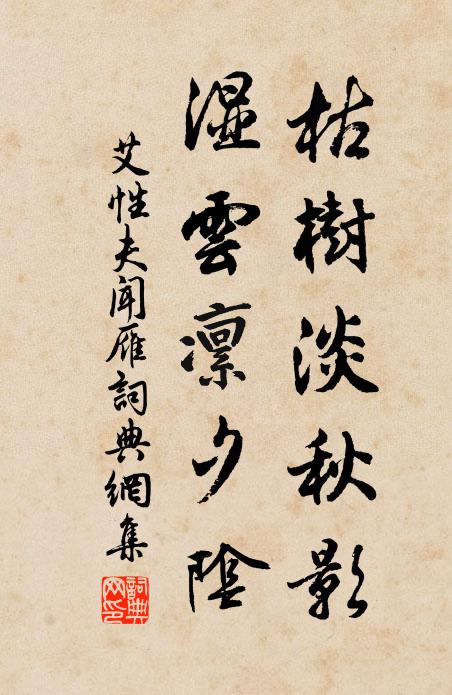 枯樹淡秋影
濕雲凛夕陰
艾性夫聞雁詞典網集
詞典网印